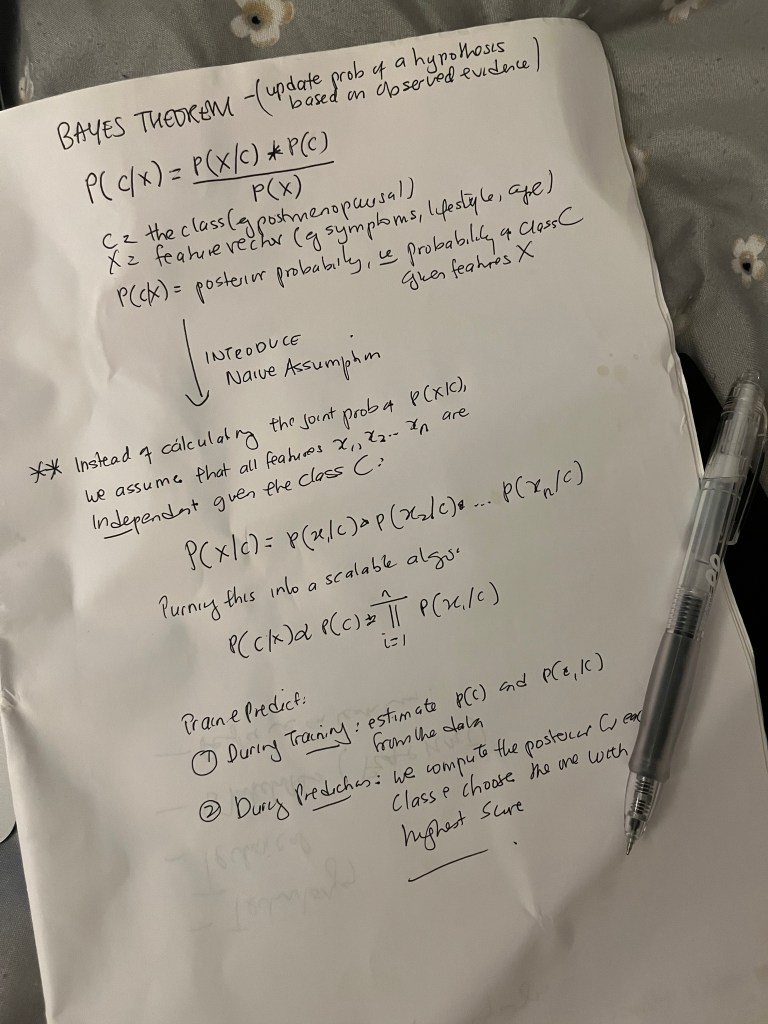 BAYES THEOREM - (update prob of a hypothosis
based on observed evidence)
P(c/x) = P(X/c) * P(c)
P(X)
C = the class (eg postmenopausal)
X = feature vector (eg symptoms, lifestyle, age)
P(c/x) = posterior probability, ie probability of class C
given features X
INTRODUCE
Naive Assumption
** Instead of calculating the joint prob of P(x/c),
we assume that all features x₁, x₂... xₙ are
Independent given the class C:
P(x/c) = P(x₁/c) * P(x₂/c) * ... P(xₙ/c)
Turning this into a scalable algo:
n
P(c/x) ∝ P(c) * ∏ P(xᵢ/c)
i=1
Predict:
① During Training: estimate P(c) and P(xᵢ/c)
from the data
② During Prediction: we compute the posterior for each
class & choose the one with
highest score